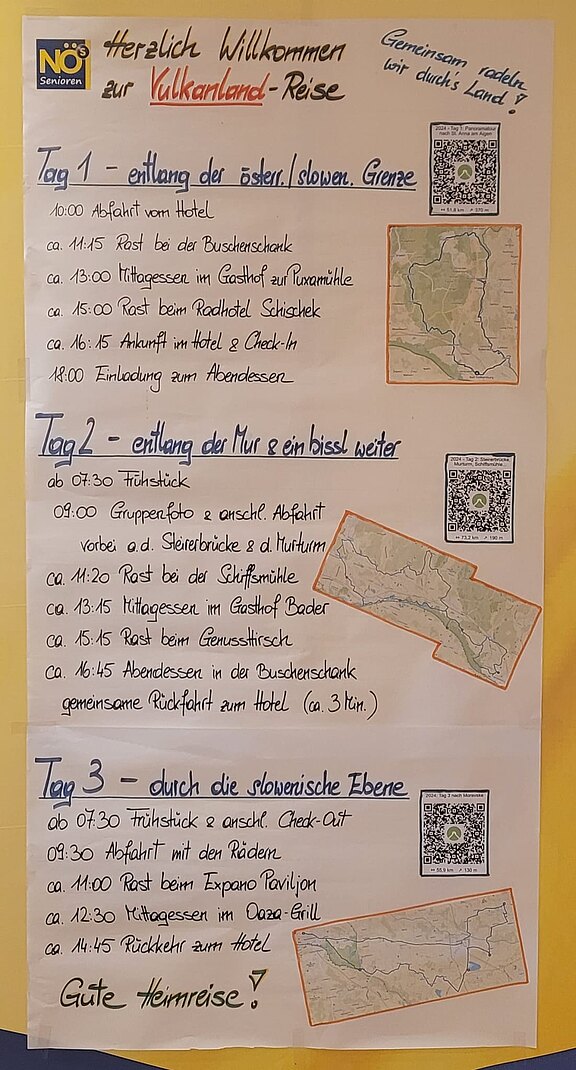 NÖs
Senioren
Herzlich Willkommen
zur Vulkanland-Reise
Gemeinsam radeln
wir durch's Land!
Tag 1 - entlang der österr./slowen. Grenze
10:00 Abfahrt vom Hotel
ca. 11:15 Rast bei der Buschenschank
ca. 13:00 Mittagessen im Gasthof zur Puxamühle
ca. 15:00 Rast beim Radhotel Schischek
ca. 16:15 Ankunft im Hotel & Check-In
18:00 Einladung zum Abendessen
2024 - Tag 1: Panoramatour
nach St. Anna am Aigen
51,8 km 370 m
Tag 2 - entlang der Mur & ein bissl weiter
ab 07:30 Frühstück
09:00 Gruppenfoto & anschl. Abfahrt
vorbei a.d. Steirerbrücke & d. Murturm
ca. 11:20 Rast bei der Schiffsmühle
ca. 13:15 Mittagessen im Gasthof Bader
ca. 15:15 Rast beim Genusshirsch
ca. 16:45 Abendessen in der Buschenschank
gemeinsame Rückfahrt zum Hotel (ca. 3 Min.)
2024 - Tag 2: Steirerbrücke,
Murturm, Schiffsmühle
73,2 km 190 m
Tag 3 - durch die slowenische Ebene
ab 07:30 Frühstück & anschl. Check-Out
09:30 Abfahrt mit den Rädern
ca. 11:00 Rast beim Expano Paviljon
ca. 12:30 Mittagessen im Oaza-Grill
ca. 14:45 Rückkehr zum Hotel
2024: Tag 3 nach Moravske
55,9 km 130 m
Gute Heimreise!